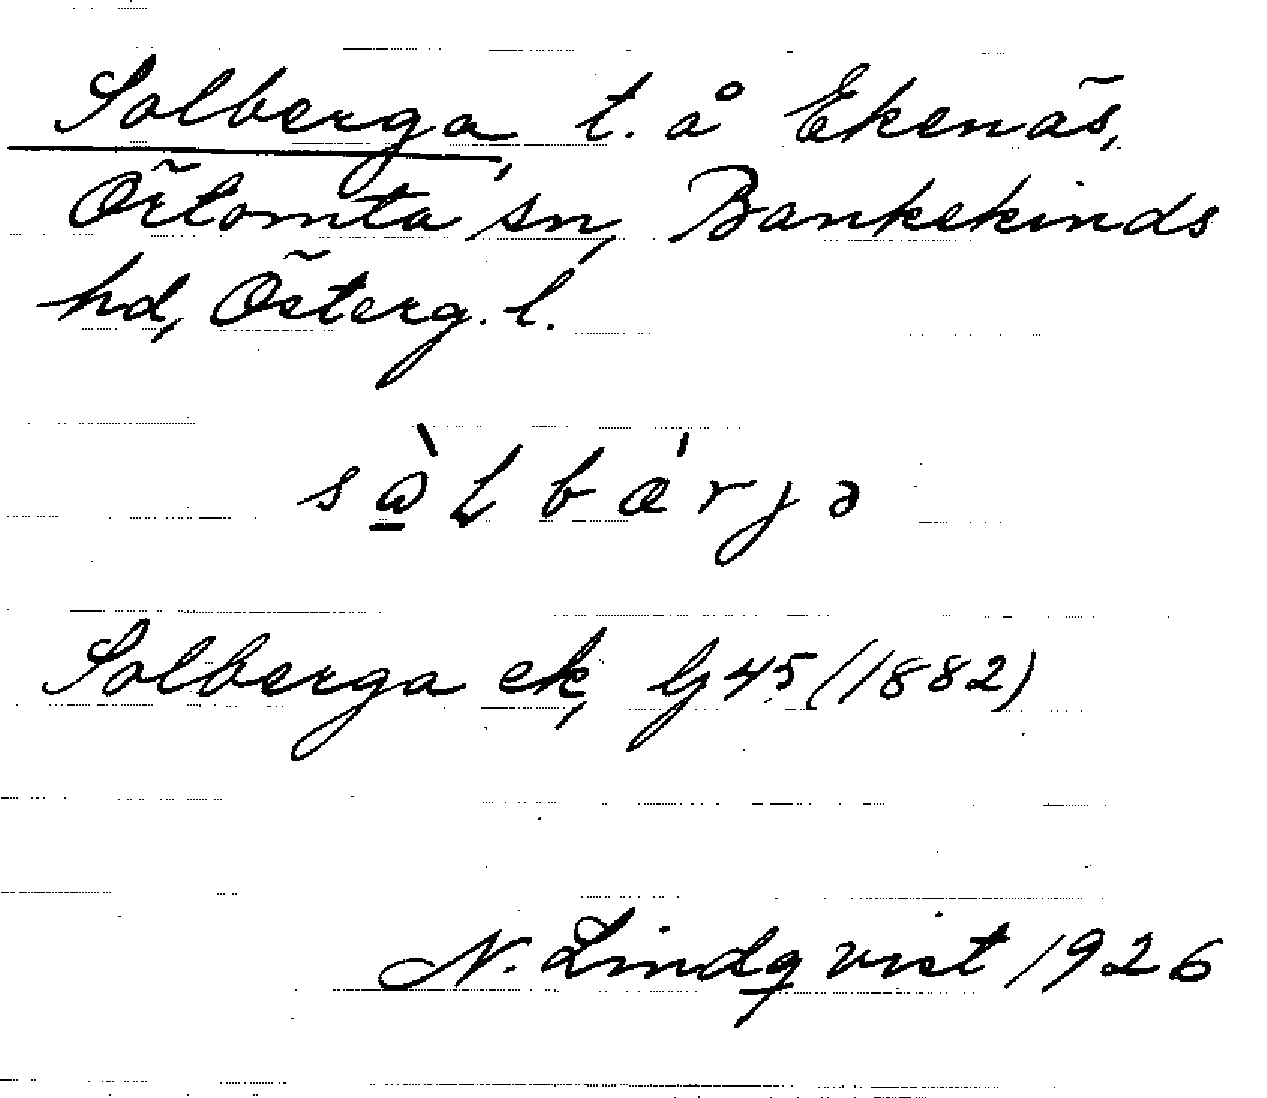 Solberga, t. å Ekenäs,
Örtomta sn, Bankekinds
hd, Österg. l.
Solberga ek, G 45 (1882)
N. Lindqvist 1926